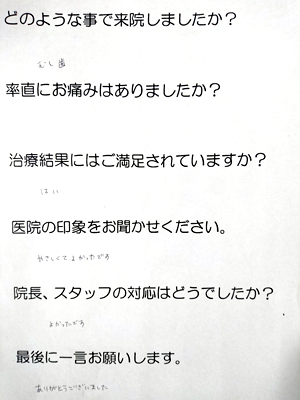 どのような事で来院しましたか？
むし歯
率直にお痛みはありましたか？
治療結果にはご満足されていますか？
はい
医院の印象をお聞かせください。
やさしくてよかったです
院長、スタッフの対応はどうでしたか？
よかったです
最後に一言お願いします。
ありがとうございました